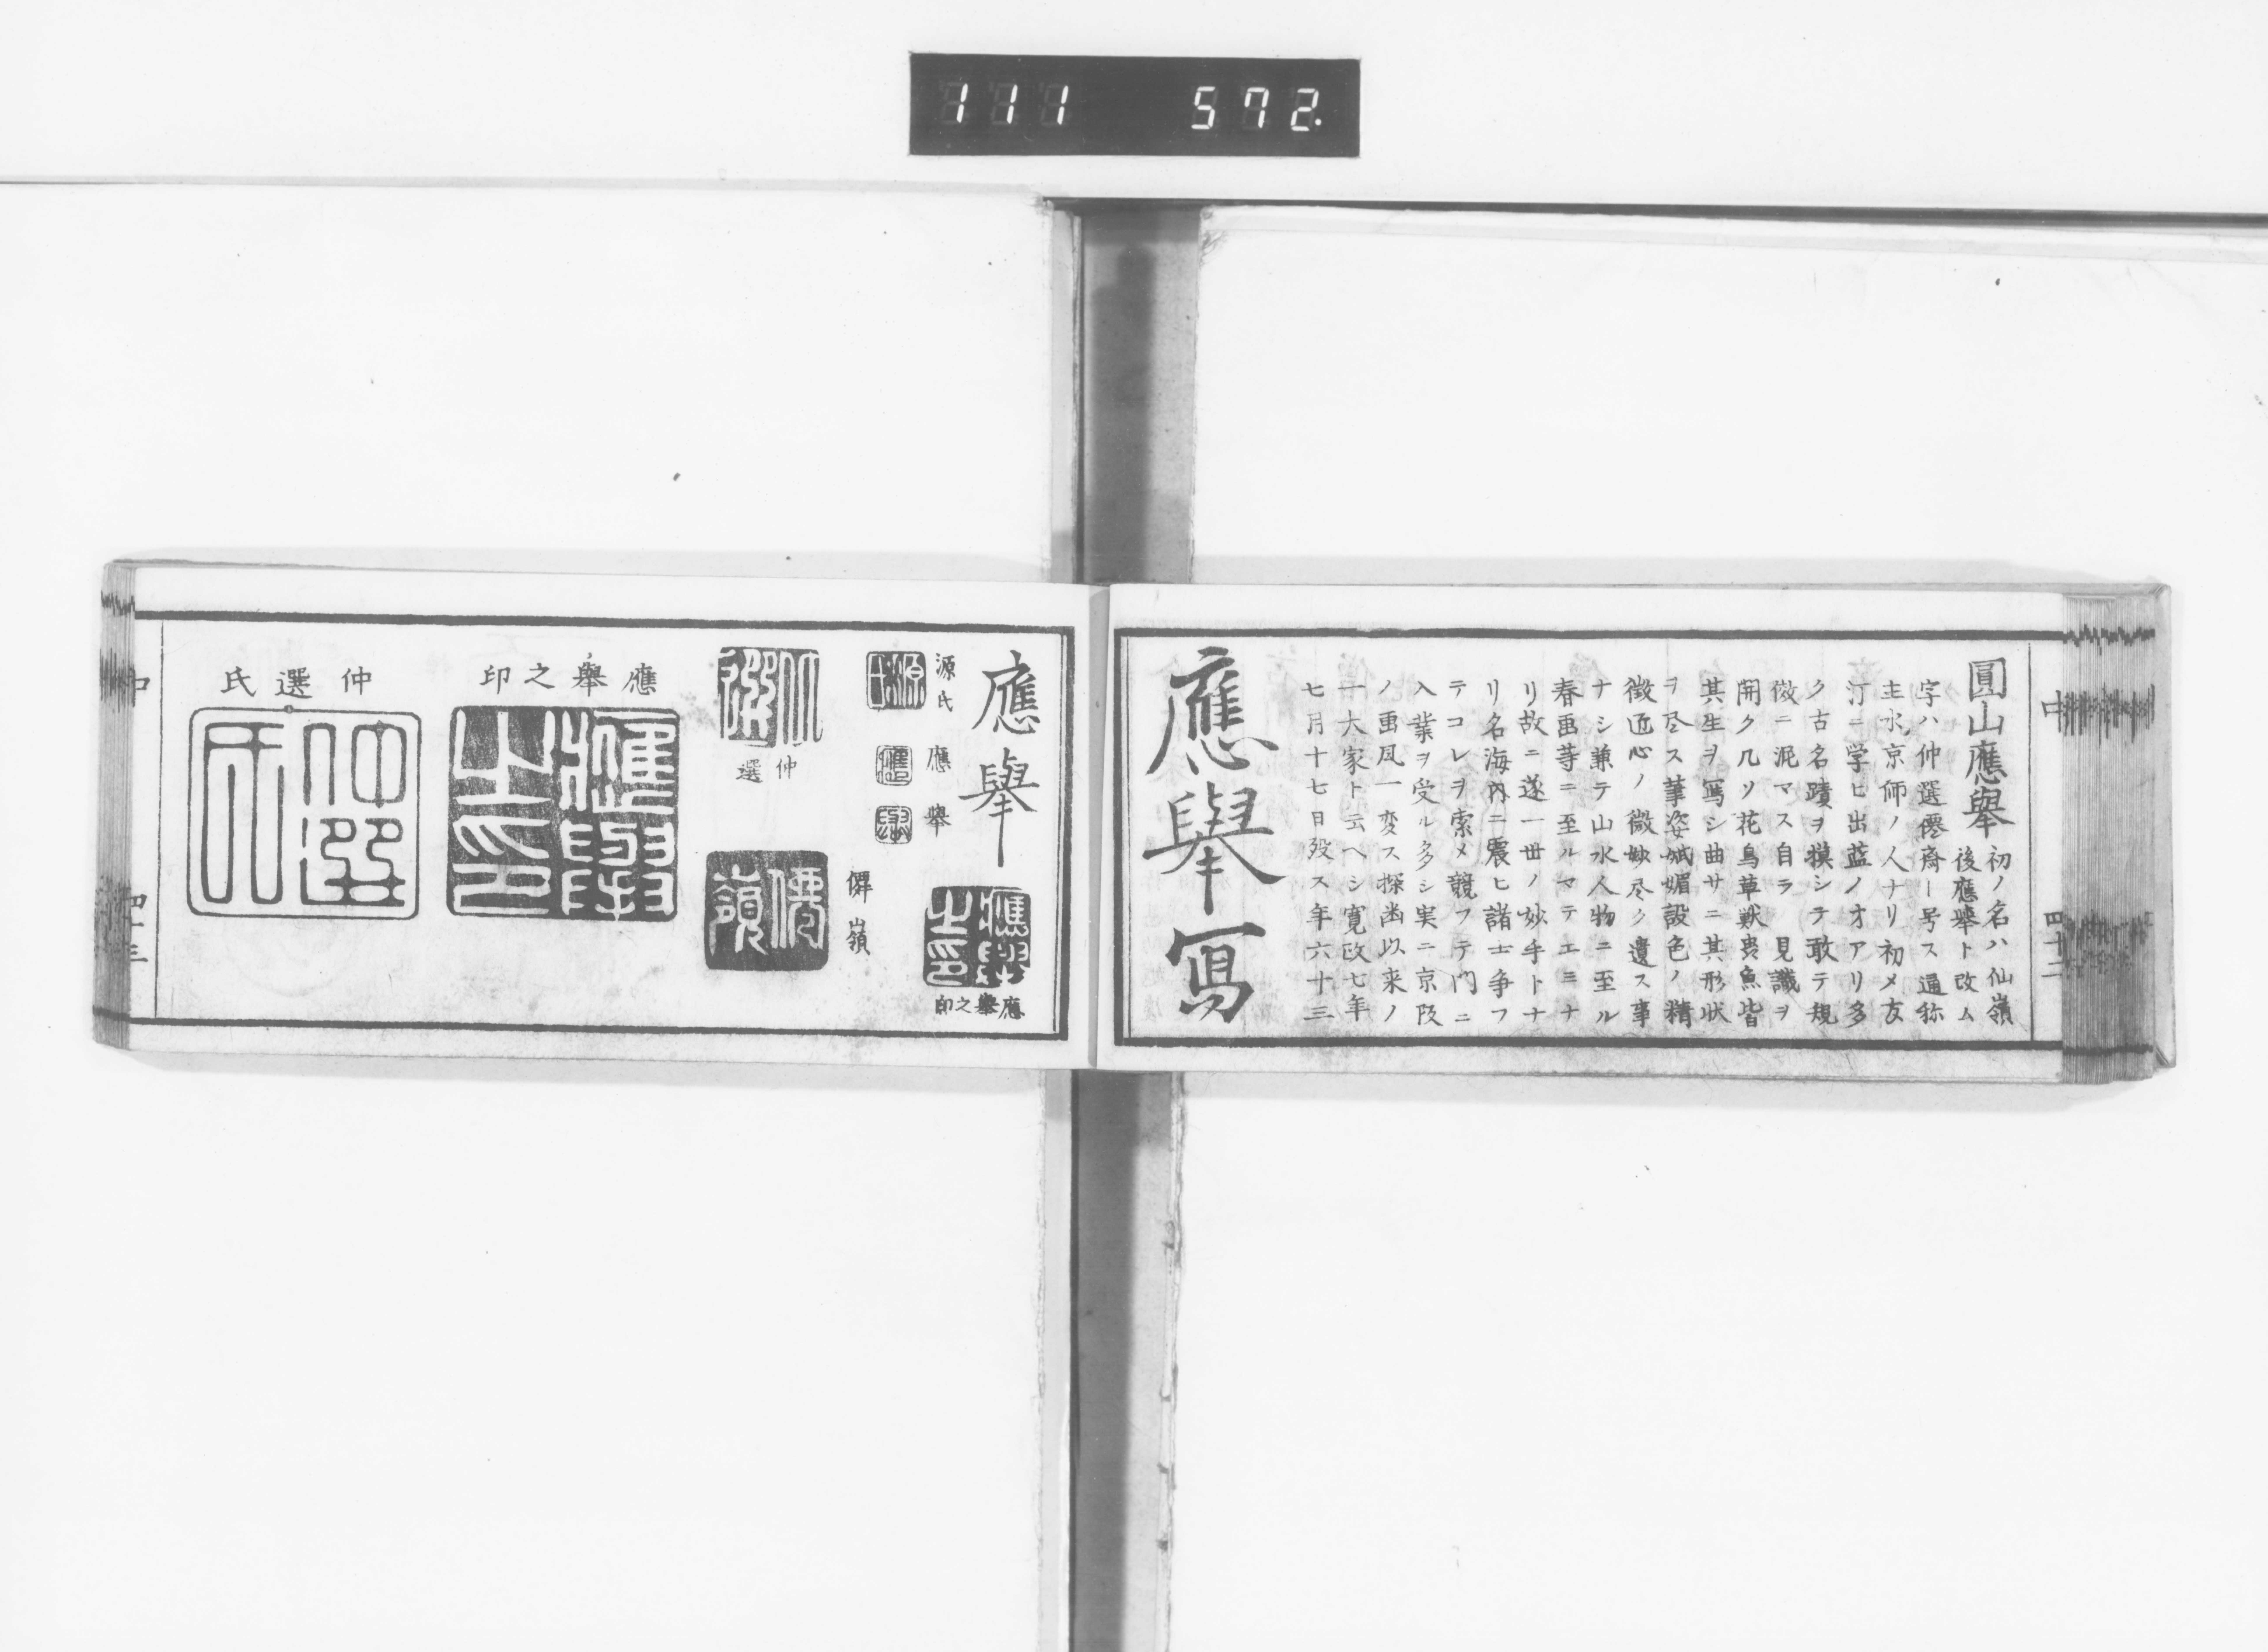 111 572.
中
四十二
圓山應擧
初ノ名ハ仙嶺
後應擧ト改ム
字ハ仲選僊齋ト号ス通称
主水京師ノ人ナリ初メ友
汀ニ学ヒ出藍ノオアリ多
ク古名蹟ヲ摸シテ敢テ規
ニ泥マス自ラ 見識ヲ
開ク凡ソ花鳥草獣虫魚皆
其生ヲ寫シ曲サニ其形状
ヲ尽ス筆姿娬媚設色ノ精
微匠心ノ微妙尽ク遺ス事
ナシ兼テ山水人物ニ至ル
春画等ニ至ルマテエミナ
リ故ニ遂一世ノ妙手トナ
リ名海内ニ震ヒ諸士争フ
テコレヲ索メ競フテ門ニ
入業ヲ受ル多シ実ニ京阪
ノ画風一変ス探幽以来ノ
一大家ト云ヘシ寛政七年
七月十七日歿ス年六十三
應擧寫
應擧
應擧之印
源氏
應擧
仲選
僊嶺
應擧之印
仲選氏
中
四十三